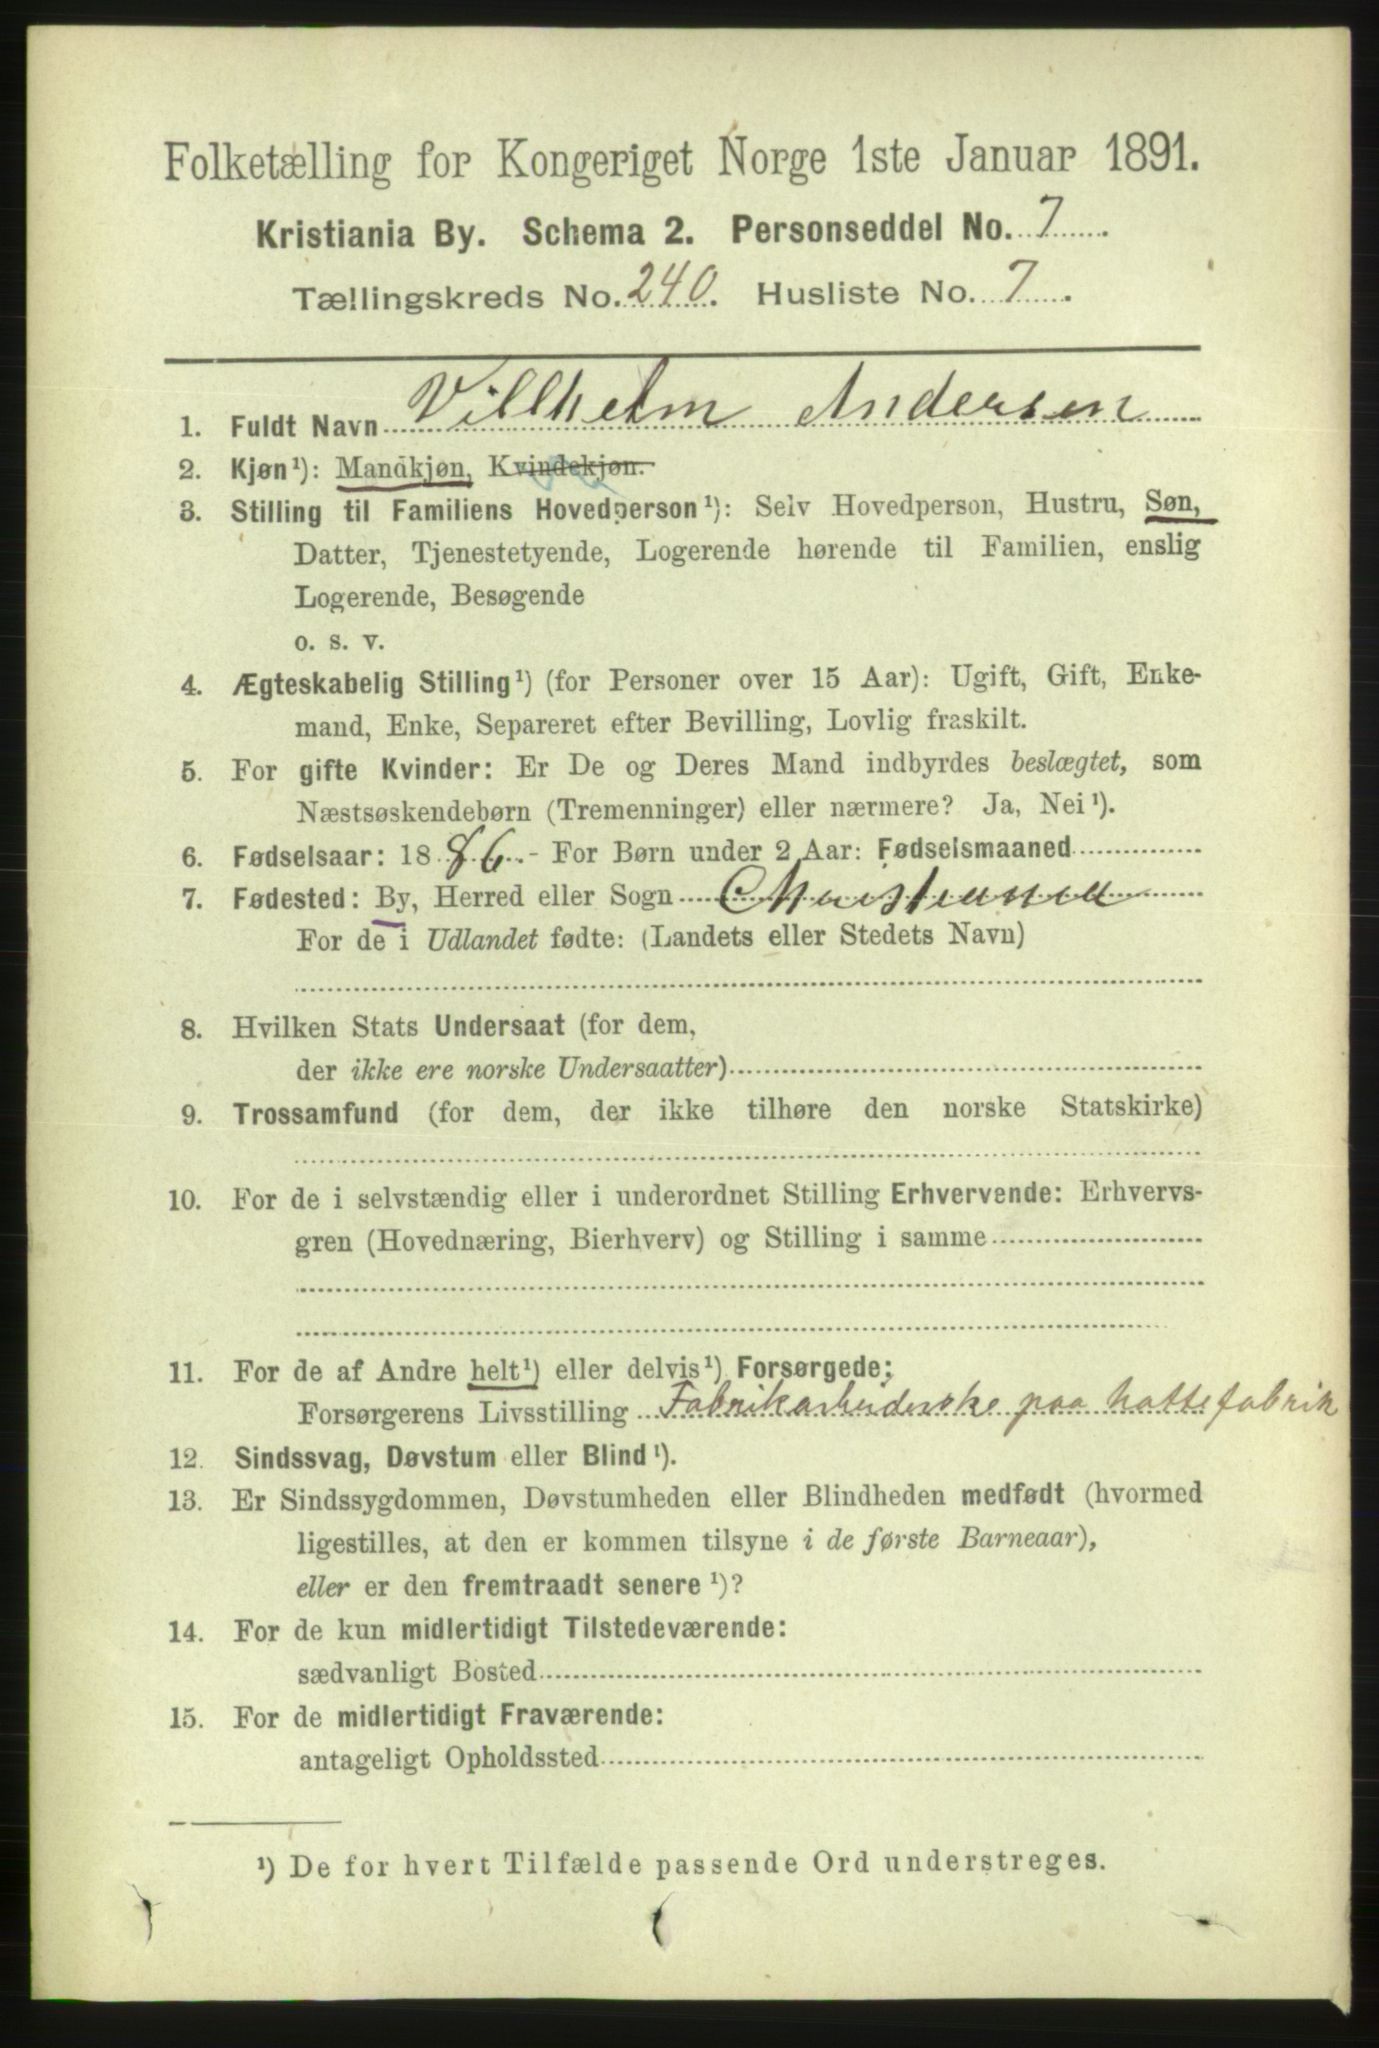 Folketælling for Kongeriget Norge 1ste Januar 1891.
Kristiania By. Schema 2. Personseddel No. 7.
Tællingskreds No. 240. Husliste No. 7.
1. Fuldt Navn Villhelm Andersen
2. Kjøn¹): Mandkjøn, Kvindekjøn.
3. Stilling til Familiens Hovedperson¹): Selv Hovedperson, Hustru, Søn,
Datter, Tjenestetyende, Logerende hørende til Familien, enslig
Logerende, Besøgende
o. s. v.
4. Ægteskabelig Stilling¹) (for Personer over 15 Aar): Ugift, Gift, Enke-
mand, Enke, Separeret efter Bevilling, Lovlig fraskilt.
5. For gifte Kvinder: Er De og Deres Mand indbyrdes beslægtet, som
Næstsøskendebørn (Tremenninger) eller nærmere? Ja, Nei¹).
6. Fødselsaar: 1886. - For Børn under 2 Aar: Fødselsmaaned
7. Fødested: By, Herred eller Sogn Christiania
For de i Udlandet fødte: (Landets eller Stedets Navn)
8. Hvilken Stats Undersaat (for dem,
der ikke ere norske Undersaatter)
9. Trossamfund (for dem, der ikke tilhøre den norske Statskirke)
10. For de i selvstændig eller i underordnet Stilling Erhvervende: Erhvervs-
gren (Hovednæring, Bierhverv) og Stilling i samme
11. For de af Andre helt¹) eller delvis¹) Forsørgede:
Forsørgerens Livsstilling Fabrikarbeiderske paa hattefabrik
12. Sindssvag, Døvstum eller Blind¹).
13. Er Sindssygdommen, Døvstumheden eller Blindheden medfødt (hvormed
ligestilles, at den er kommen tilsyne i de første Barneaar),
eller er den fremtraadt senere¹)?
14. For de kun midlertidigt Tilstedeværende:
sædvanligt Bosted
15. For de midlertidigt Fraværende:
antageligt Opholdssted
¹) De for hvert Tilfælde passende Ord understreges.